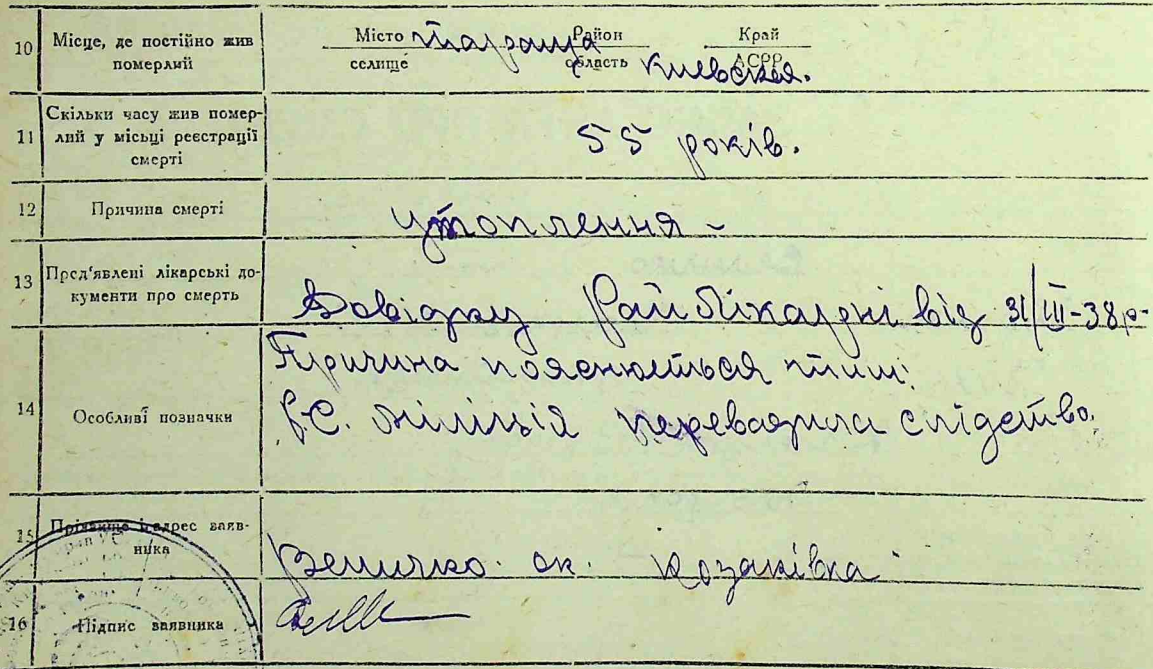 10 Місце, де постійно жив померлий
Місто селище Тараща Район область Киевская. Край АСРР
11 Скільки часу жив помер-
лий у місьці реєстрації
смерті
55 років.
12 Причина смерті
утоплення -
13 Пред'явлені лікарські до-
кументи про смерть
Довідку Райлікарні від 31/III-38 р.
14 Особливі позначки
Причина пояснюеться тим:
Р.С. Міліція переводила слідство.
15 Прізвище і адрес заяв-
ника
Величко ок. Козаківка
16 Підпис заявника